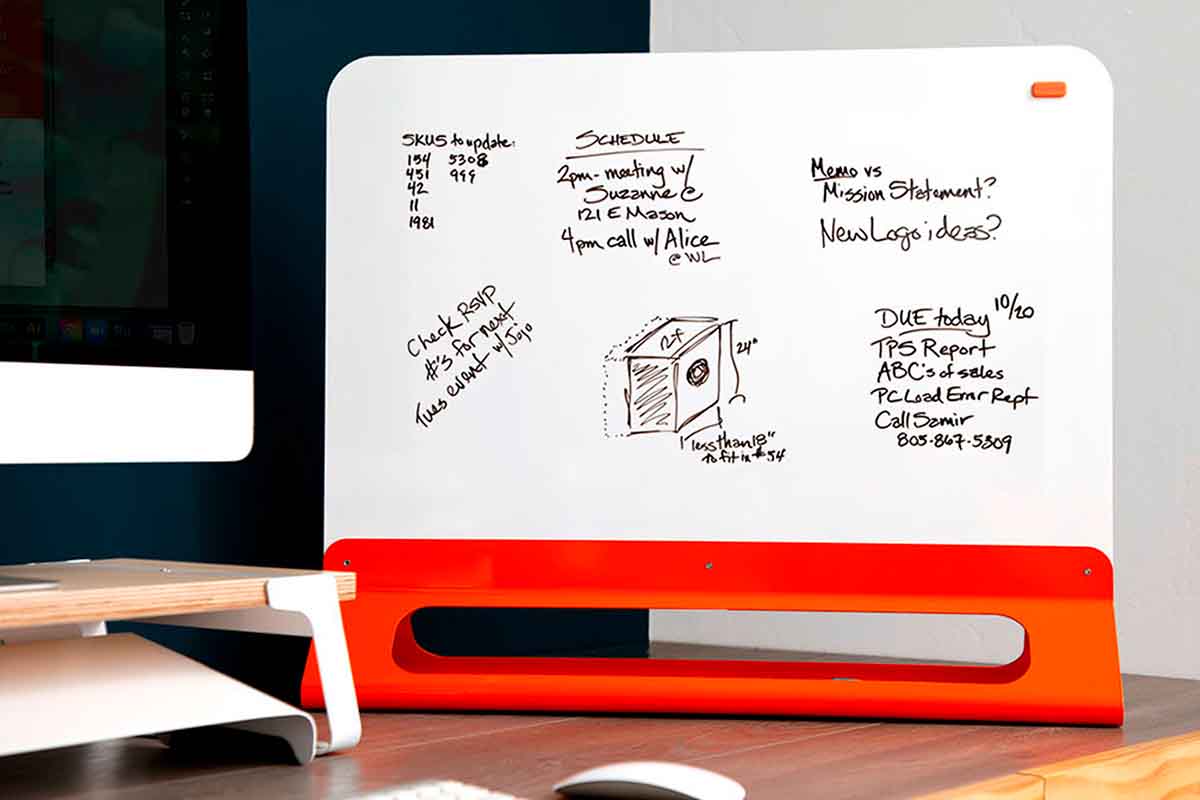 SKUS to update:
154 5308
451 999
42
11
1981
SCHEDULE
2pm - meeting w/
Suzanne C
121 E Mason
4pm call w/ Alice
@ WL
Memo vs
Mission Statement?
New Logo ideas?
Check RSVP
#'s for next
Tues event w/ Jojo
24"
less than 18"
to fit in #54
DUE today 10/20
TPS Report
ABC's of sales
PC Load Error Rept
Call Samir
805-867-5309
Ai